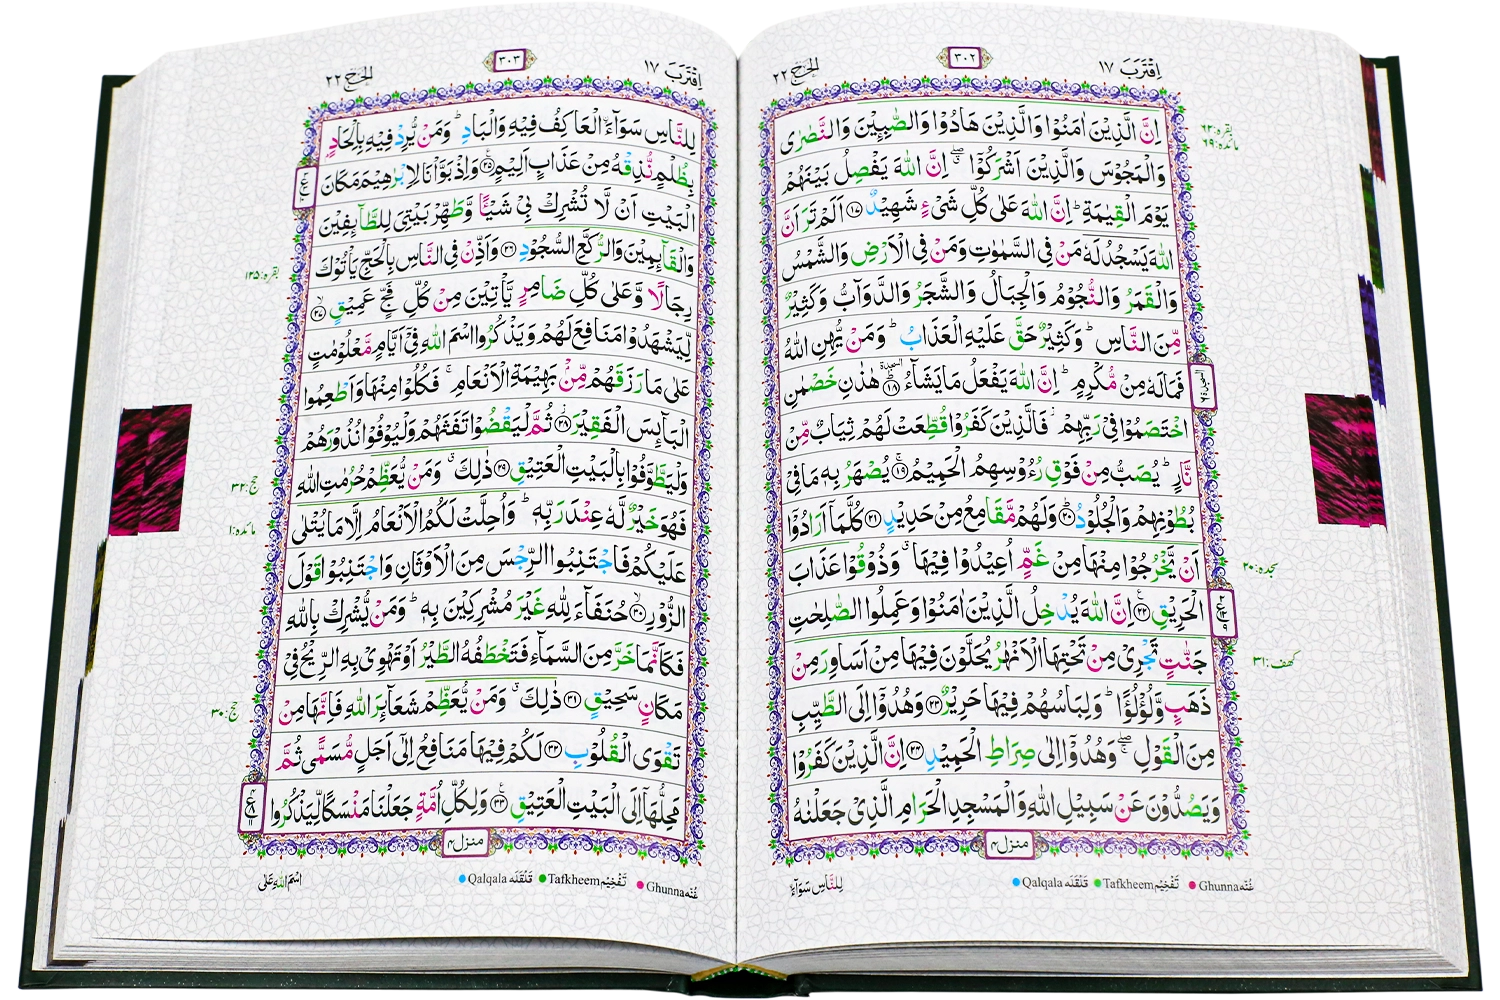 اِقْتَرَبَ ١٧
٣٠٢
الحَجّ ٢٢
اِنَّ الَّذِيْنَ اٰمَنُوْا وَالَّذِيْنَ هَادُوْا وَالصّٰبِـِٕيْنَ وَالنَّصٰرٰى
وَالْمَجُوْسَ وَالَّذِيْنَ اَشْرَكُوْۤا ۖۗ اِنَّ اللّٰهَ يَفْصِلُ بَيْنَهُمْ
يَوْمَ الْقِيٰمَةِ ؕ اِنَّ اللّٰهَ عَلٰى كُلِّ شَىْءٍ شَهِيْدٌ ۝۱۷ اَلَمْ تَرَ اَنَّ
اللّٰهَ يَسْجُدُ لَهٗ مَنْ فِى السَّمٰوٰتِ وَمَنْ فِى الْاَرْضِ وَالشَّمْسُ
وَالْقَمَرُ وَالنُّجُوْمُ وَالْجِبَالُ وَالشَّجَرُ وَالدَّوَآبُّ وَكَثِيْرٌ
مِّنَ النَّاسِ ؕ وَكَثِيْرٌ حَقَّ عَلَيْهِ الْعَذَابُ ؕ وَمَنْ يُّهِنِ اللّٰهُ
فَمَا لَهٗ مِنْ مُّكْرِمٍ ؕ اِنَّ اللّٰهَ يَفْعَلُ مَا يَشَآءُ ۝۱۸ هٰذٰنِ خَصْمٰنِ
اخْتَصَمُوْا فِيْ رَبِّهِمْ ۫ فَالَّذِيْنَ كَفَرُوْا قُطِّعَتْ لَهُمْ ثِيَابٌ مِّنْ
نَّارٍ ؕ يُصَبُّ مِنْ فَوْقِ رُءُوْسِهِمُ الْحَمِيْمُ ۝۱۹ يُصْهَرُ بِهٖ مَا فِيْ
بُطُوْنِهِمْ وَالْجُلُوْدُ ۝۲۰ وَلَهُمْ مَّقَامِعُ مِنْ حَدِيْدٍ ۝۲۱ كُلَّمَاۤ اَرَادُوْۤا
اَنْ يَّخْرُجُوْا مِنْهَا مِنْ غَمٍّ اُعِيْدُوْا فِيْهَا ۗ وَذُوْقُوْا عَذَابَ
الْحَرِيْقِ ۝۲۲ اِنَّ اللّٰهَ يُدْخِلُ الَّذِيْنَ اٰمَنُوْا وَعَمِلُوا الصّٰلِحٰتِ
جَنّٰتٍ تَجْرِيْ مِنْ تَحْتِهَا الْاَنْهٰرُ يُحَلَّوْنَ فِيْهَا مِنْ اَسَاوِرَ مِنْ
ذَهَبٍ وَّلُؤْلُؤًا ؕ وَلِبَاسُهُمْ فِيْهَا حَرِيْرٌ ۝۲۳ وَهُدُوْۤا اِلَى الطَّيِّبِ
مِنَ الْقَوْلِ ۖۚ وَهُدُوْۤا اِلٰى صِرَاطِ الْحَمِيْدِ ۝۲۴ اِنَّ الَّذِيْنَ كَفَرُوْا
وَيَصُدُّوْنَ عَنْ سَبِيْلِ اللّٰهِ وَالْمَسْجِدِ الْحَرَامِ الَّذِيْ جَعَلْنٰهُ
بقره:۶۲
مائده:۶۹
سجده:۲۰
كهف:۳۱
منزل ۴
لِلنَّاسِ سَوَآءَ
Qalqala قَلْقَلَه Tafkheem تَفْخِيْم Ghunna غُنَّه
اِقْتَرَبَ ١٧
٣٠٣
الحَجّ ٢٢
لِلنَّاسِ سَوَآءَ ۨالْعَاكِفُ فِيْهِ وَالْبَادِ ؕ وَمَنْ يُّرِدْ فِيْهِ بِاِلْحَادٍۭ
بِظُلْمٍ نُّذِقْهُ مِنْ عَذَابٍ اَلِيْمٍ ۝۲۵ وَاِذْ بَوَّاْنَا لِاِبْرٰهِيْمَ مَكَانَ
الْبَيْتِ اَنْ لَّا تُشْرِكْ بِيْ شَيْـًٔا وَّطَهِّرْ بَيْتِيَ لِلطَّآئِفِيْنَ
وَالْقَآئِمِيْنَ وَالرُّكَّعِ السُّجُوْدِ ۝۲۶ وَاَذِّنْ فِى النَّاسِ بِالْحَجِّ يَاْتُوْكَ
رِجَالًا وَّعَلٰى كُلِّ ضَامِرٍ يَّاْتِيْنَ مِنْ كُلِّ فَجٍّ عَمِيْقٍ ۝۲۷
لِّيَشْهَدُوْا مَنَافِعَ لَهُمْ وَيَذْكُرُوا اسْمَ اللّٰهِ فِيْۤ اَيَّامٍ مَّعْلُوْمٰتٍ
عَلٰى مَا رَزَقَهُمْ مِّنْۢ بَهِيْمَةِ الْاَنْعَامِ ۚ فَكُلُوْا مِنْهَا وَاَطْعِمُوا
الْبَآئِسَ الْفَقِيْرَ ۝۲۸ ثُمَّ لْيَقْضُوْا تَفَثَهُمْ وَلْيُوْفُوْا نُذُوْرَهُمْ
وَلْيَطَّوَّفُوْا بِالْبَيْتِ الْعَتِيْقِ ۝۲۹ ذٰلِكَ ۗ وَمَنْ يُّعَظِّمْ حُرُمٰتِ اللّٰهِ
فَهُوَ خَيْرٌ لَّهٗ عِنْدَ رَبِّهٖ ؕ وَاُحِلَّتْ لَكُمُ الْاَنْعَامُ اِلَّا مَا يُتْلٰى
عَلَيْكُمْ فَاجْتَنِبُوا الرِّجْسَ مِنَ الْاَوْثَانِ وَاجْتَنِبُوْا قَوْلَ
الزُّوْرِ ۝۳۰ حُنَفَآءَ لِلّٰهِ غَيْرَ مُشْرِكِيْنَ بِهٖ ؕ وَمَنْ يُّشْرِكْ بِاللّٰهِ
فَكَاَنَّمَا خَرَّ مِنَ السَّمَآءِ فَتَخْطَفُهُ الطَّيْرُ اَوْ تَهْوِيْ بِهِ الرِّيْحُ فِيْ
مَكَانٍ سَحِيْقٍ ۝۳۱ ذٰلِكَ ۗ وَمَنْ يُّعَظِّمْ شَعَآئِرَ اللّٰهِ فَاِنَّهَا مِنْ
تَقْوَى الْقُلُوْبِ ۝۳۲ لَكُمْ فِيْهَا مَنَافِعُ اِلٰۤى اَجَلٍ مُّسَمًّى ثُمَّ
مَحِلُّهَاۤ اِلَى الْبَيْتِ الْعَتِيْقِ ۝۳۳ وَلِكُلِّ اُمَّةٍ جَعَلْنَا مَنْسَكًا لِّيَذْكُرُوا
بقره:۱۲۵
حج:۳۲
مائده:۱
حج:۳۰
منزل ۴
اسْمَ اللّٰهِ عَلٰى
Qalqala قَلْقَلَه Tafkheem تَفْخِيْم Ghunna غُنَّه